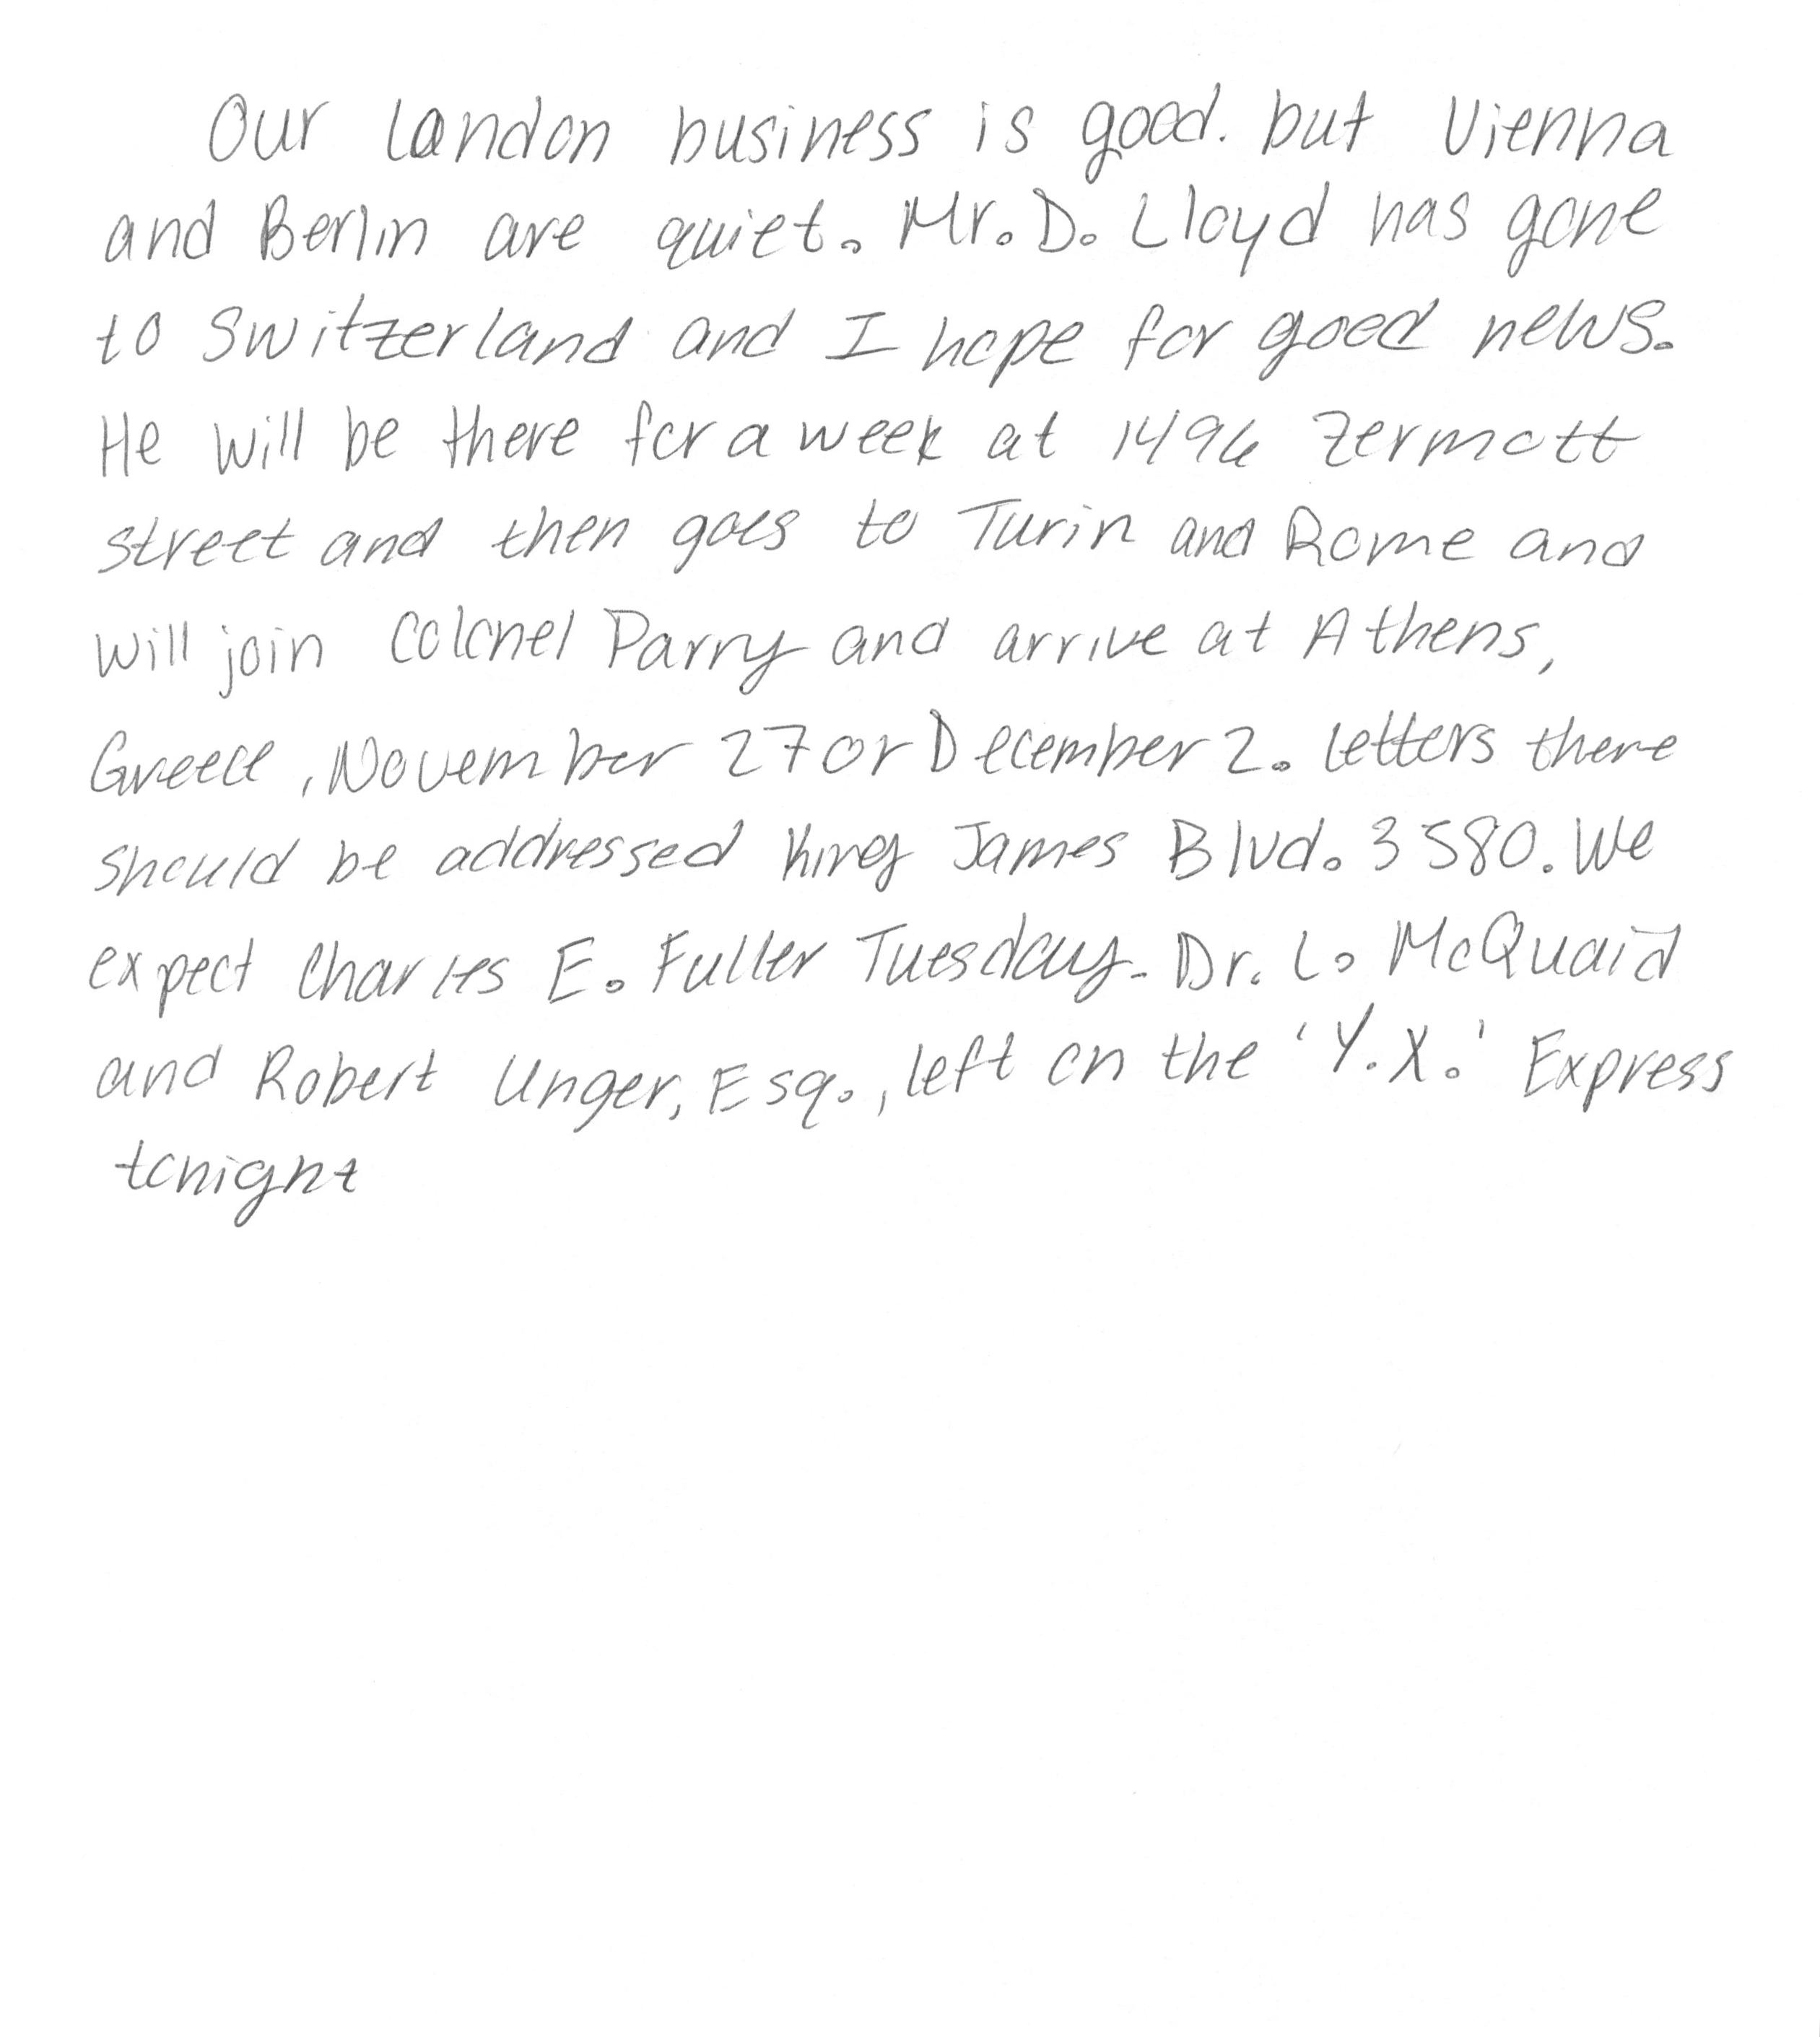 Our London business is good. but Vienna
and Berlin are quiet. Mr. D. Lloyd has gone
to Switzerland and I hope for good news.
He will be there for a week at 1496 Zermott
street and then goes to Turin and Rome and
will join Colonel Parry and arrive at Athens,
Greece, November 27 or December 2. letters there
should be addressed King James Blvd. 3580. We
expect Charles E. Fuller Tuesday. Dr. L. McQuaid
and Robert Unger, Esq., left on the 'Y.X.' Express
tonight